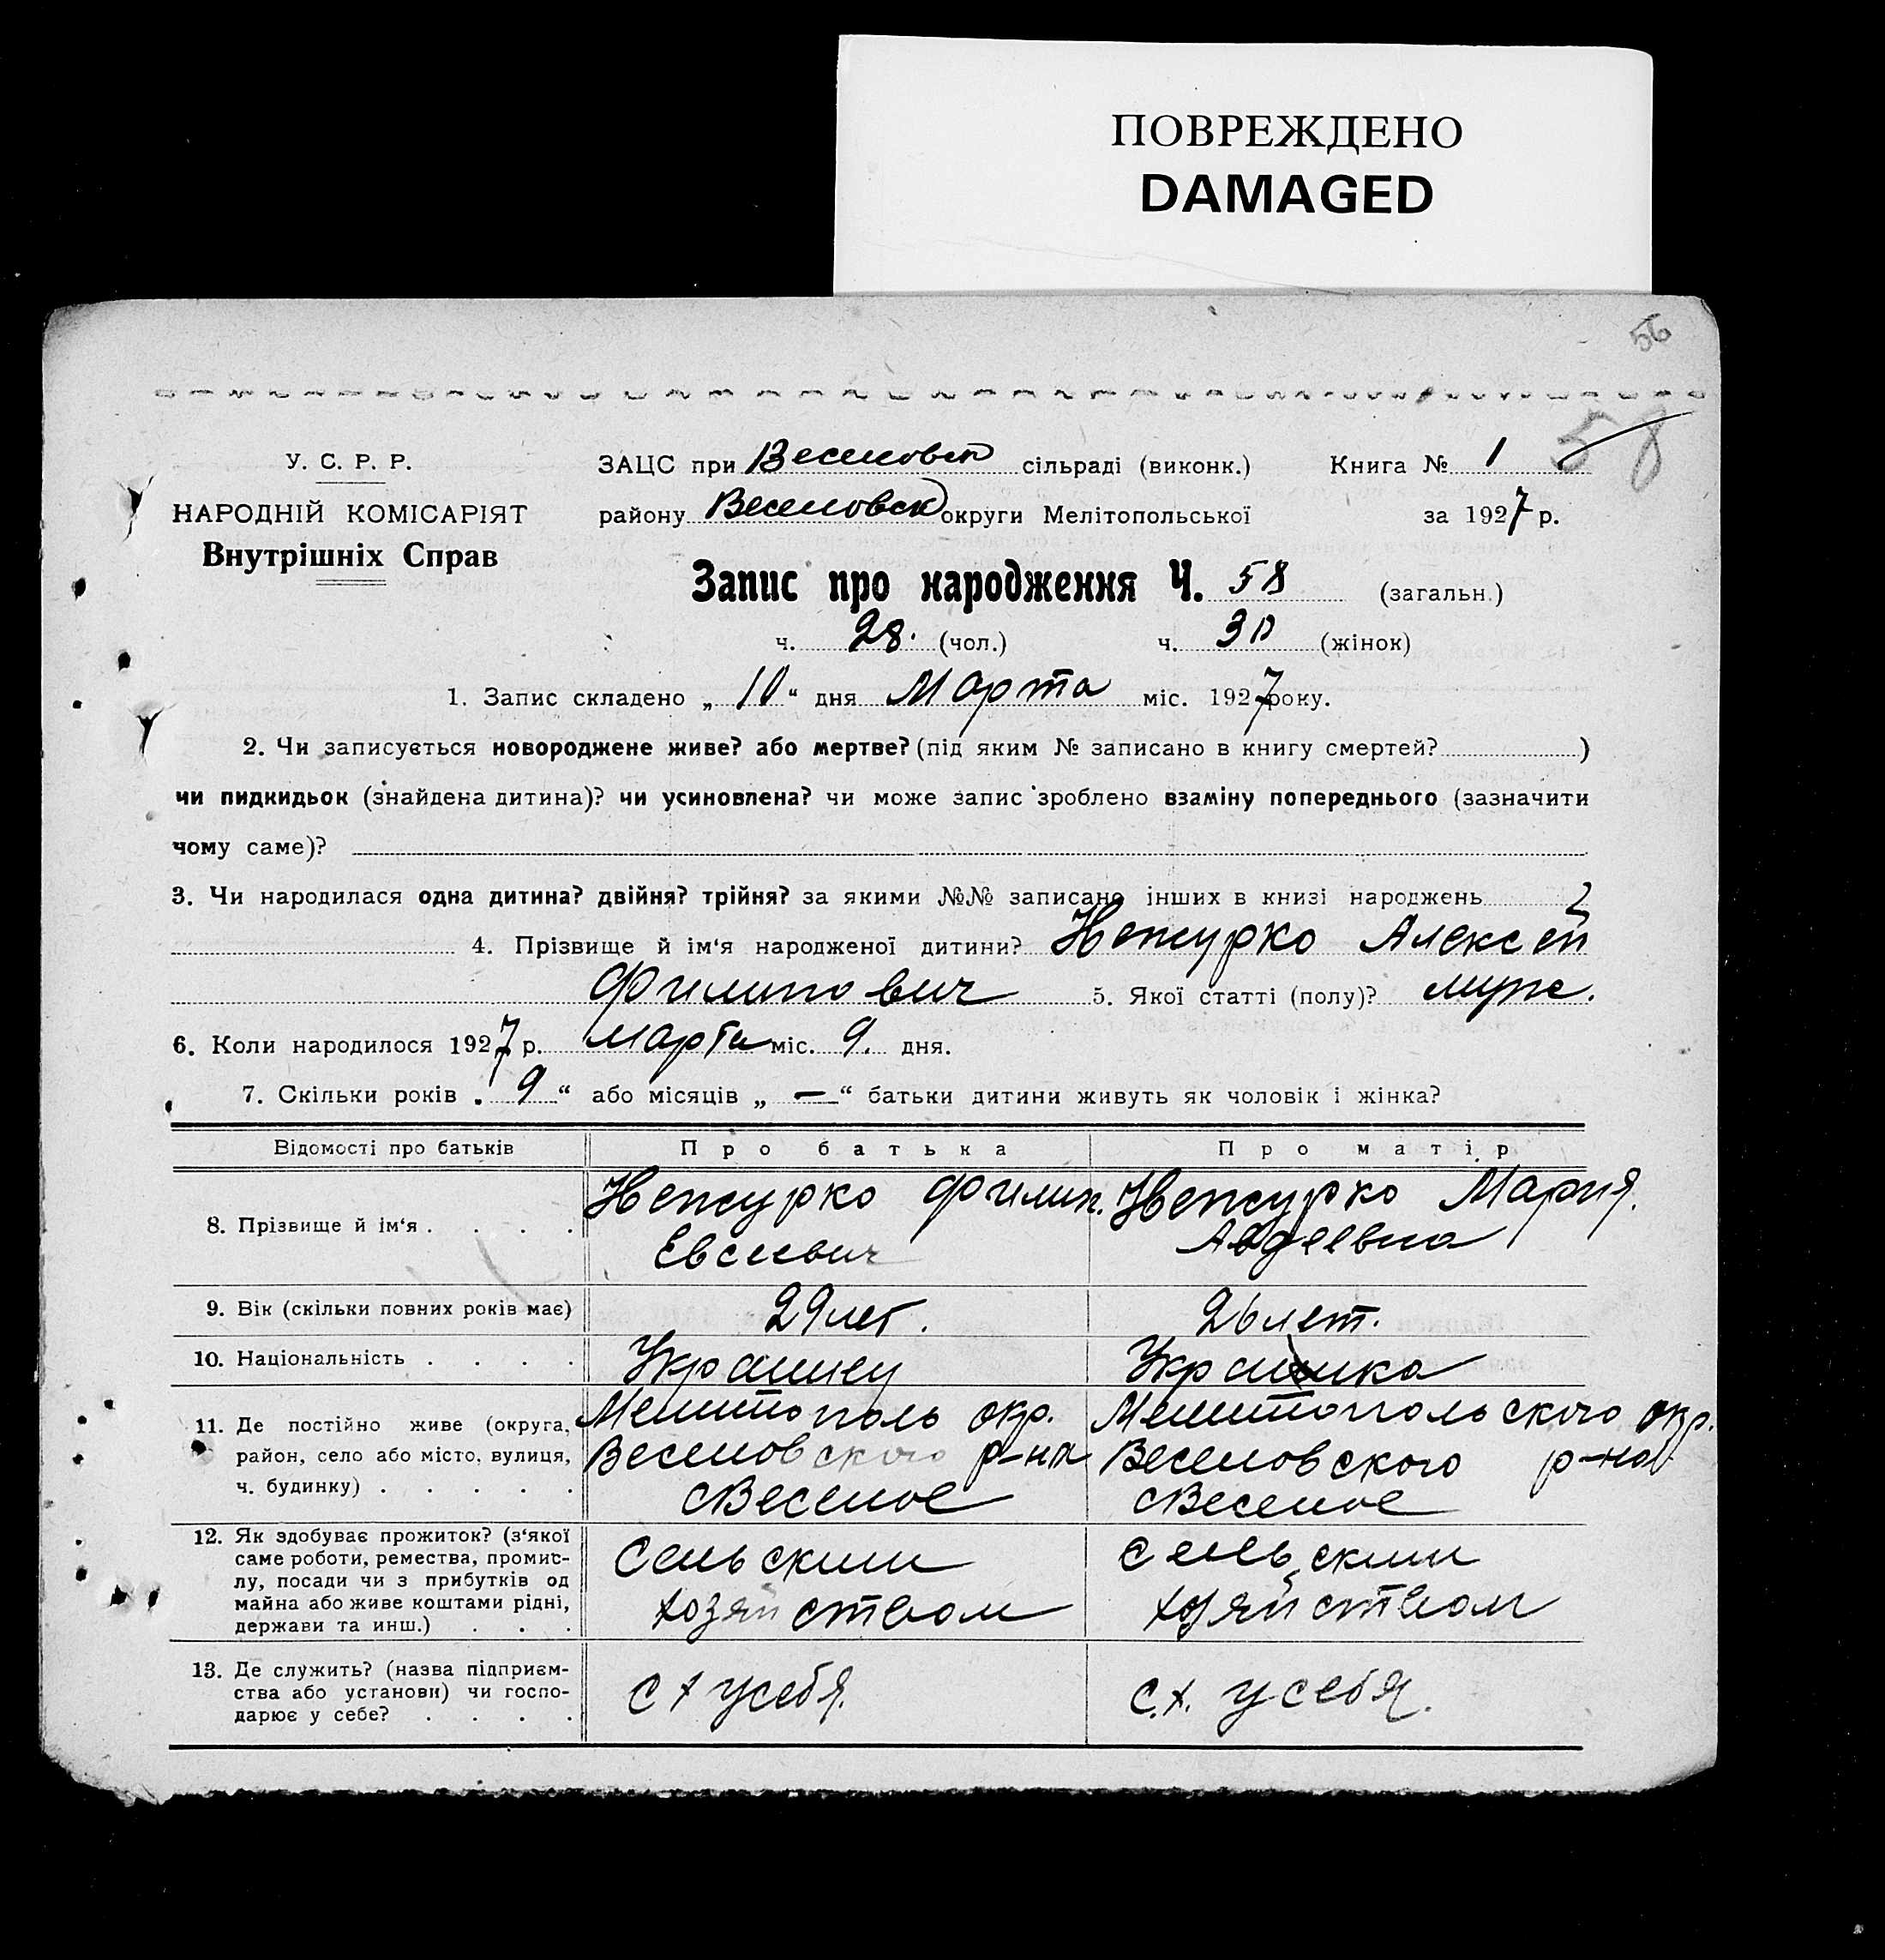 ПОВРЕЖДЕНО
DAMAGED
56
58
У. С. Р. Р.
НАРОДНІЙ КОМІСАРІЯТ
Внутрішніх Справ
ЗАЦС при Веселовск сільраді (виконк.) Книга № 1
району Веселовск округи Мелітопольської за 1927 р.
Запис про народження Ч. 58 (загальн.)
ч. 28. (чол.) ч. 30 (жінок)
1. Запис складено „ 10 “ дня Марта міс. 1927 року.
2. Чи записується новороджене живе? або мертве? (під яким № записано в книгу смертей? )
чи пидкидьок (знайдена дитина)? чи усиновлена? чи може запис зроблено взаміну попереднього (зазначити
чому саме)?
3. Чи народилася одна дитина? двійня? трійня? за якими №№ записано інших в книзі народжень
4. Прізвище й ім‘я народженої дитини? Непсурко Алексей
Филипович 5. Якої статті (полу)? муж.
6. Коли народилося 1927 р. Марта міс. 9. дня.
7. Скільки років „ 9 “ або місяців „ — “ батьки дитини живуть як чоловік і жінка?
Відомості про батьків Про батька Про матір
8. Прізвище й ім‘я . . . . Непсурко Филип. Непсурко Мария.
Евсеевич Авдеевна
9. Вік (скільки повних років має) 29 лет. 26 лет.
10. Національність . . . . Украинец Украинка
11. Де постійно живе (округа, Мелитополь окр. Мелитопольского окр.
район, село або місто, вулиця, Веселовского р-на Веселовского р-на
ч. будинку) . . . . . с Веселое с Веселое
12. Як здобуває прожиток? (з‘якої
саме роботи, ремества, промис- Сельским сельским
лу, посади чи з прибутків од
майна або живе коштами рідні, хозяйством хозяйством
держави та инш.) . . .
13. Де служить? (назва підприєм-
ства або установи) чи госпо- с х у себя. с.х. у себя.
дарює у себе? . . . .